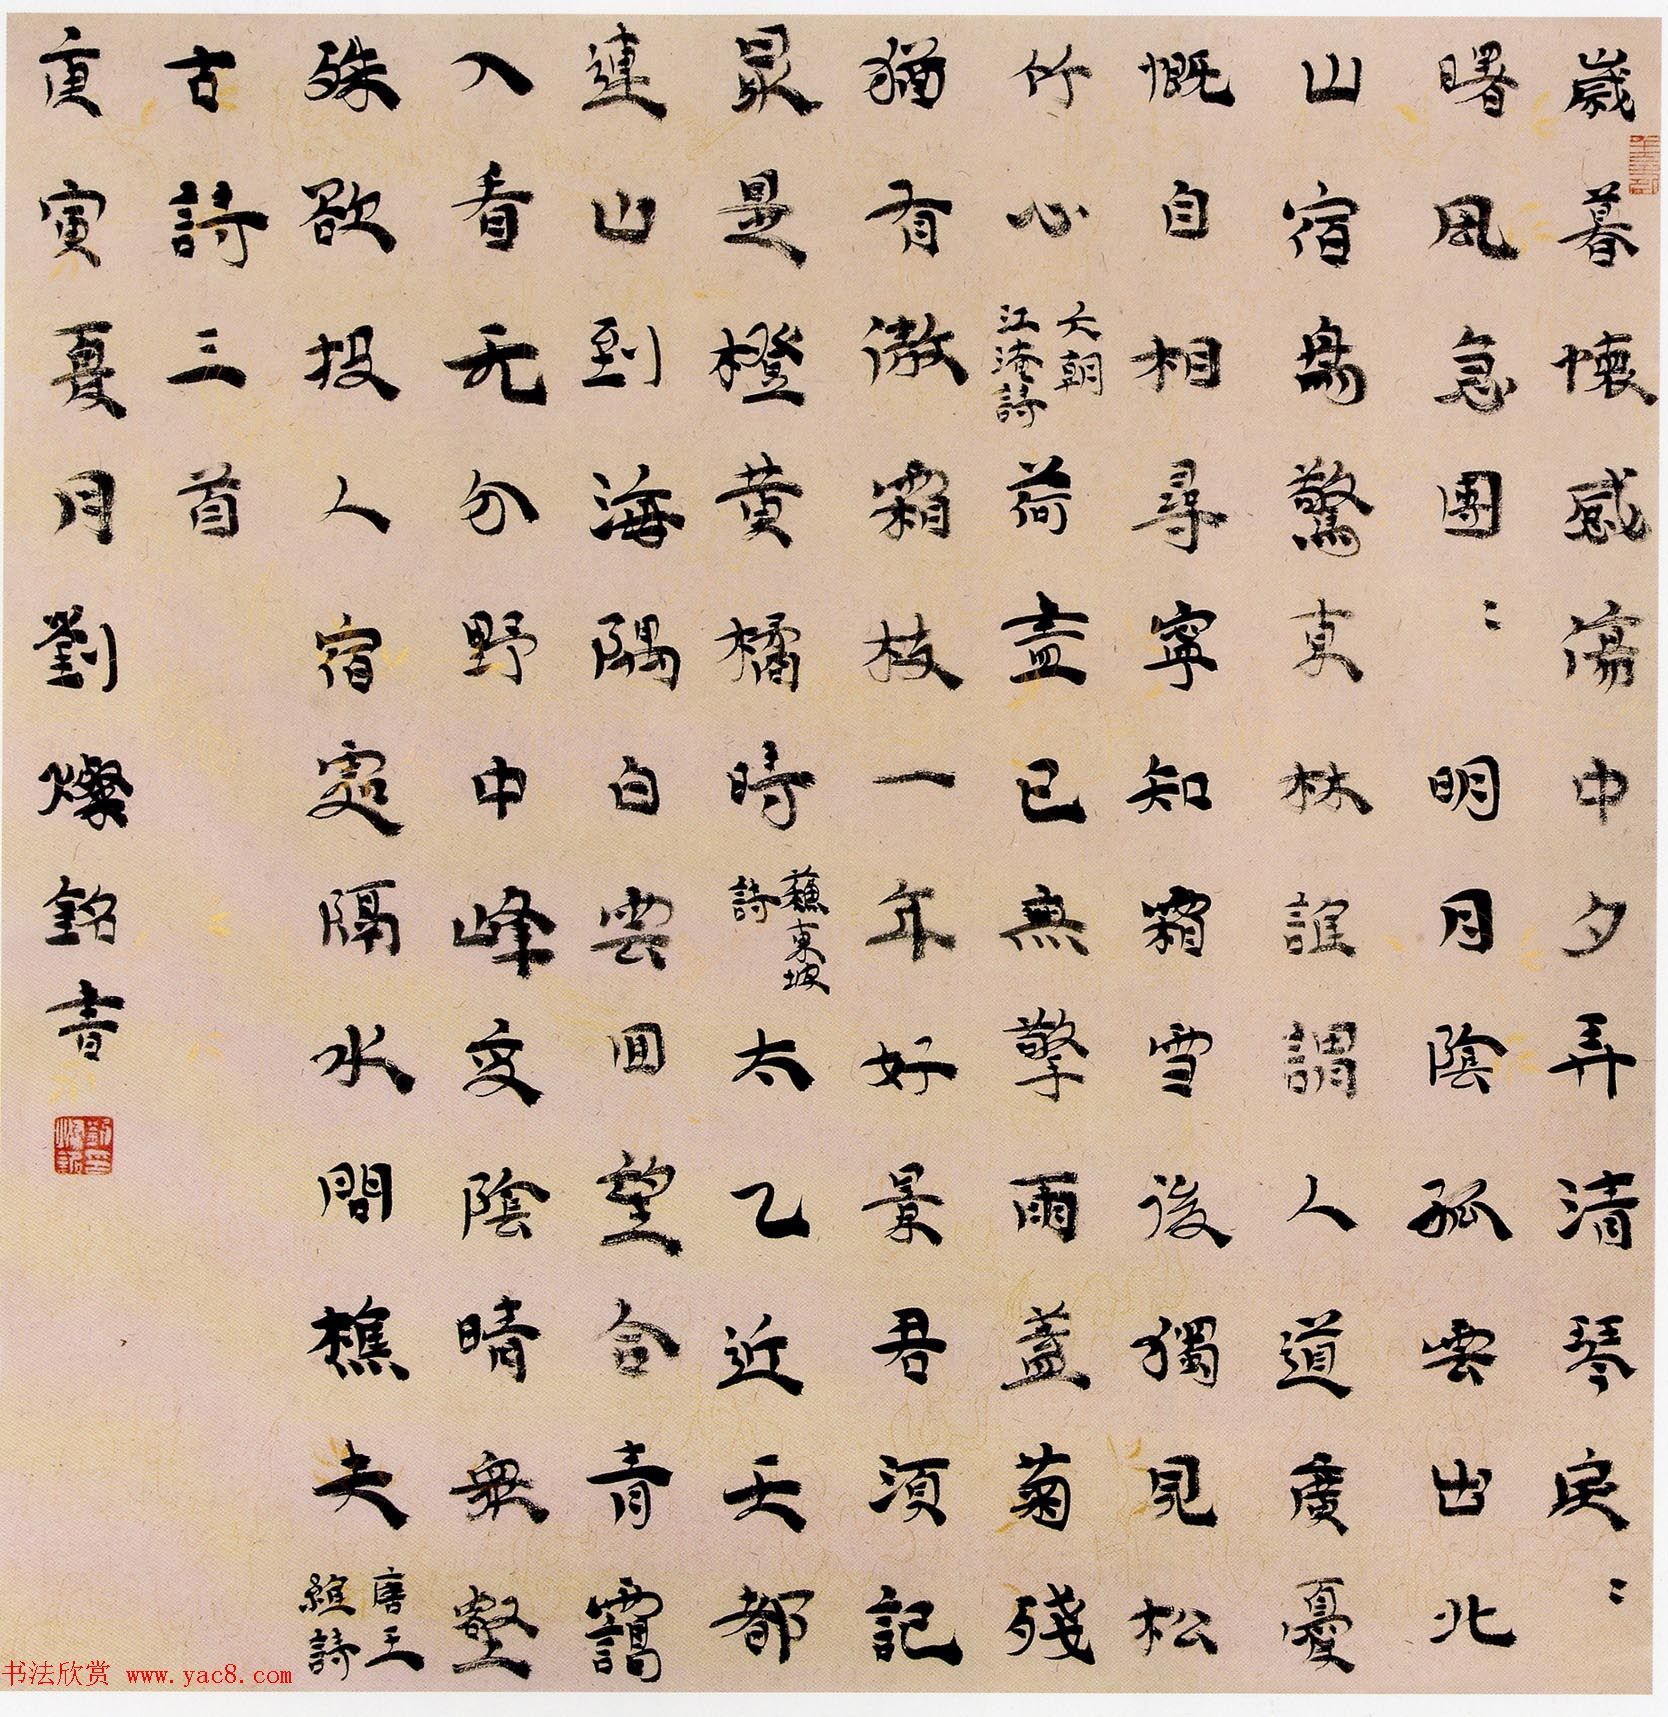 歲暮懷感傷中夕弄清琴戾〻
曙風急團〻明月陰孤雲出北
山宿鳥驚東林誰謂人道廣憂
慨自相尋寧知霜雪後獨見松
竹心六朝江淹詩荷盡已無擎雨蓋菊殘
猶有傲霜枝一年好景君須記
最是橙黄橘時蘇東坡詩太乙近天都
連山到海隅白雲回望合青靄
入看无分野中峰變陰晴衆壑
殊欲投人宿處隔水間樵夫唐王維詩
古詩三首
庚寅夏月劉燦銘書
书法欣赏 www.yac8.com